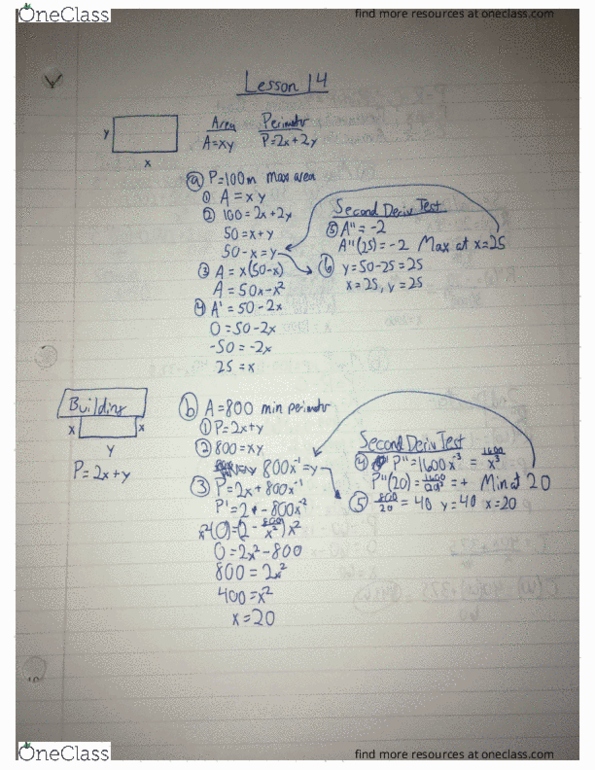 OneClass
find more resources at oneclass.com
Lesson 14
y
x
Area
A=xy
Perimeter
P=2x+2y
ⓐ P=100m max area
① A=xy
② 100=2x+2y
50=x+y
50-x=y
③ A=x(50-x)
A=50x-x²
④ A'=50-2x
0=50-2x
-50=-2x
25=x
Second Deriv Test
⑤ A''=-2
A''(25)=-2 Max at x=25
⑥ y=50-25=25
x=25, y=25
Building
x
x
y
P=2x+y
ⓑ A=800 min perimeter
① P=2x+y
② 800=xy
800x⁻¹=y
③ P=2x+800x⁻¹
P'=2-800x⁻²
x²(0)=(2-800/x²)x²
0=2x²-800
800=2x²
400=x²
x=20
Second Deriv Test
④ P''=1600x⁻³=1600/x³
P''(20)=1600/20³=+ Min at 20
⑤ 800/20=40 y=40 x=20
OneClass
find more resources at oneclass.com